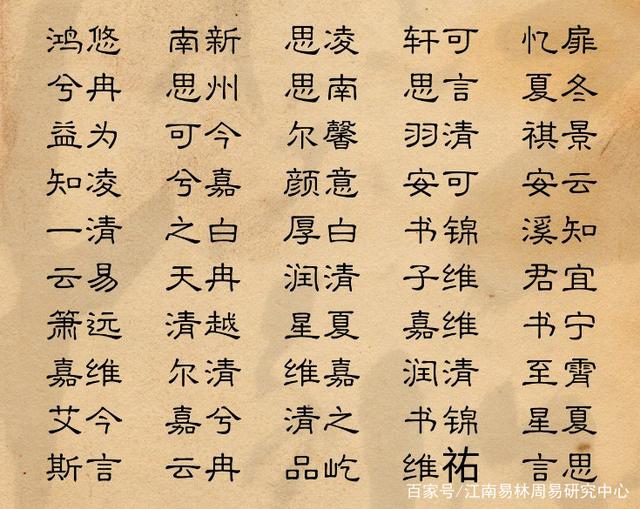 鸿悠 南新 思凌 轩可 忆扉
兮冉 思州 思南 思言 夏冬
益为 可今 尔馨 羽清 祺景
知凌 兮嘉 颜意 安可 安云
一清 之白 厚白 书锦 溪知
云易 天冉 润清 子维 君宜
箫远 清越 星夏 嘉维 书宁
嘉维 尔清 维嘉 润清 至霄
艾今 嘉兮 清之 书锦 星夏
斯言 云冉 品屹 维祐 言思
百家号/江南易林周易研究中心